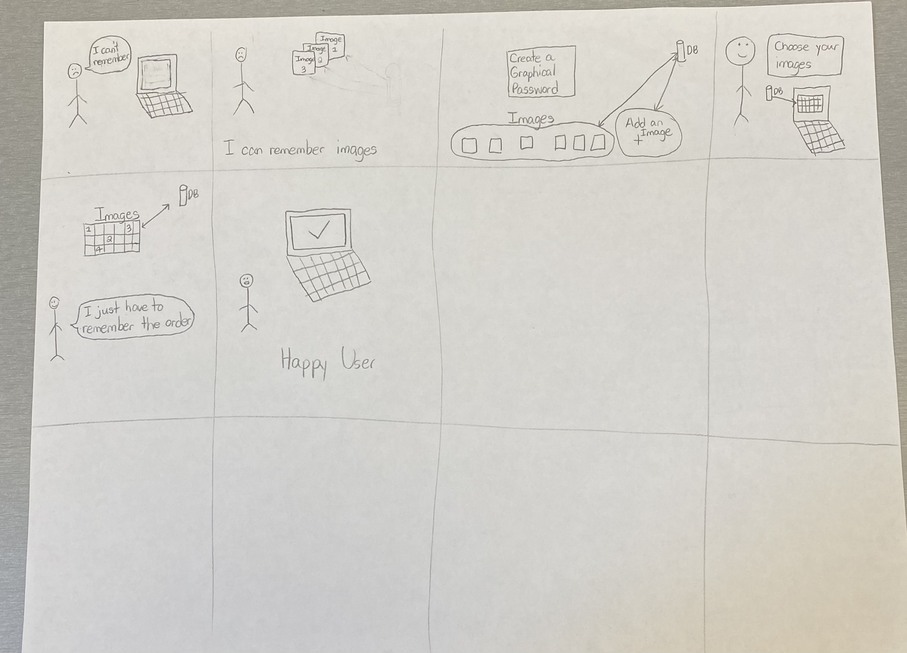 I can't
remember
Image
1
Image
2
Image
3
I can remember images
Create a
Graphical
Password
DB
Images
Add an
Image
+
Choose your
images
DB
DB
Images
1
3
2
4
I just have to
remember the order
Happy User